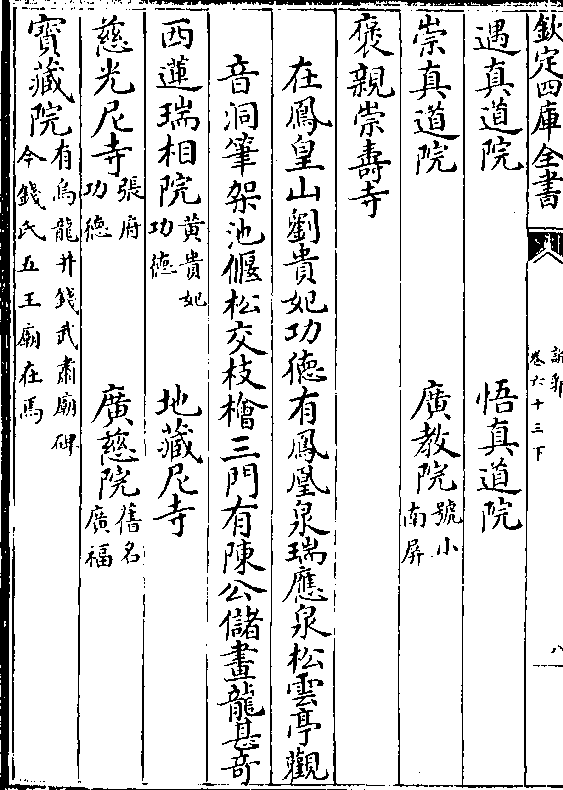 欽定四庫全書
說郛
卷六十三下
八
遇真道院　悟真道院
崇真道院　廣教院號小
南屏
褒親崇壽寺
在鳳皇山劉貴妃功德有鳳凰泉瑞應泉松雲亭觀
音洞筆架池偃松交枝檜三門有陳公儲畫龍甚奇
西蓮瑞相院黃貴妃
功德　地藏尼寺
慈光尼寺張府
功德　廣慈院舊名
廣福
寳藏院有烏龍井錢武肅廟碑
今錢氏五王廟在焉